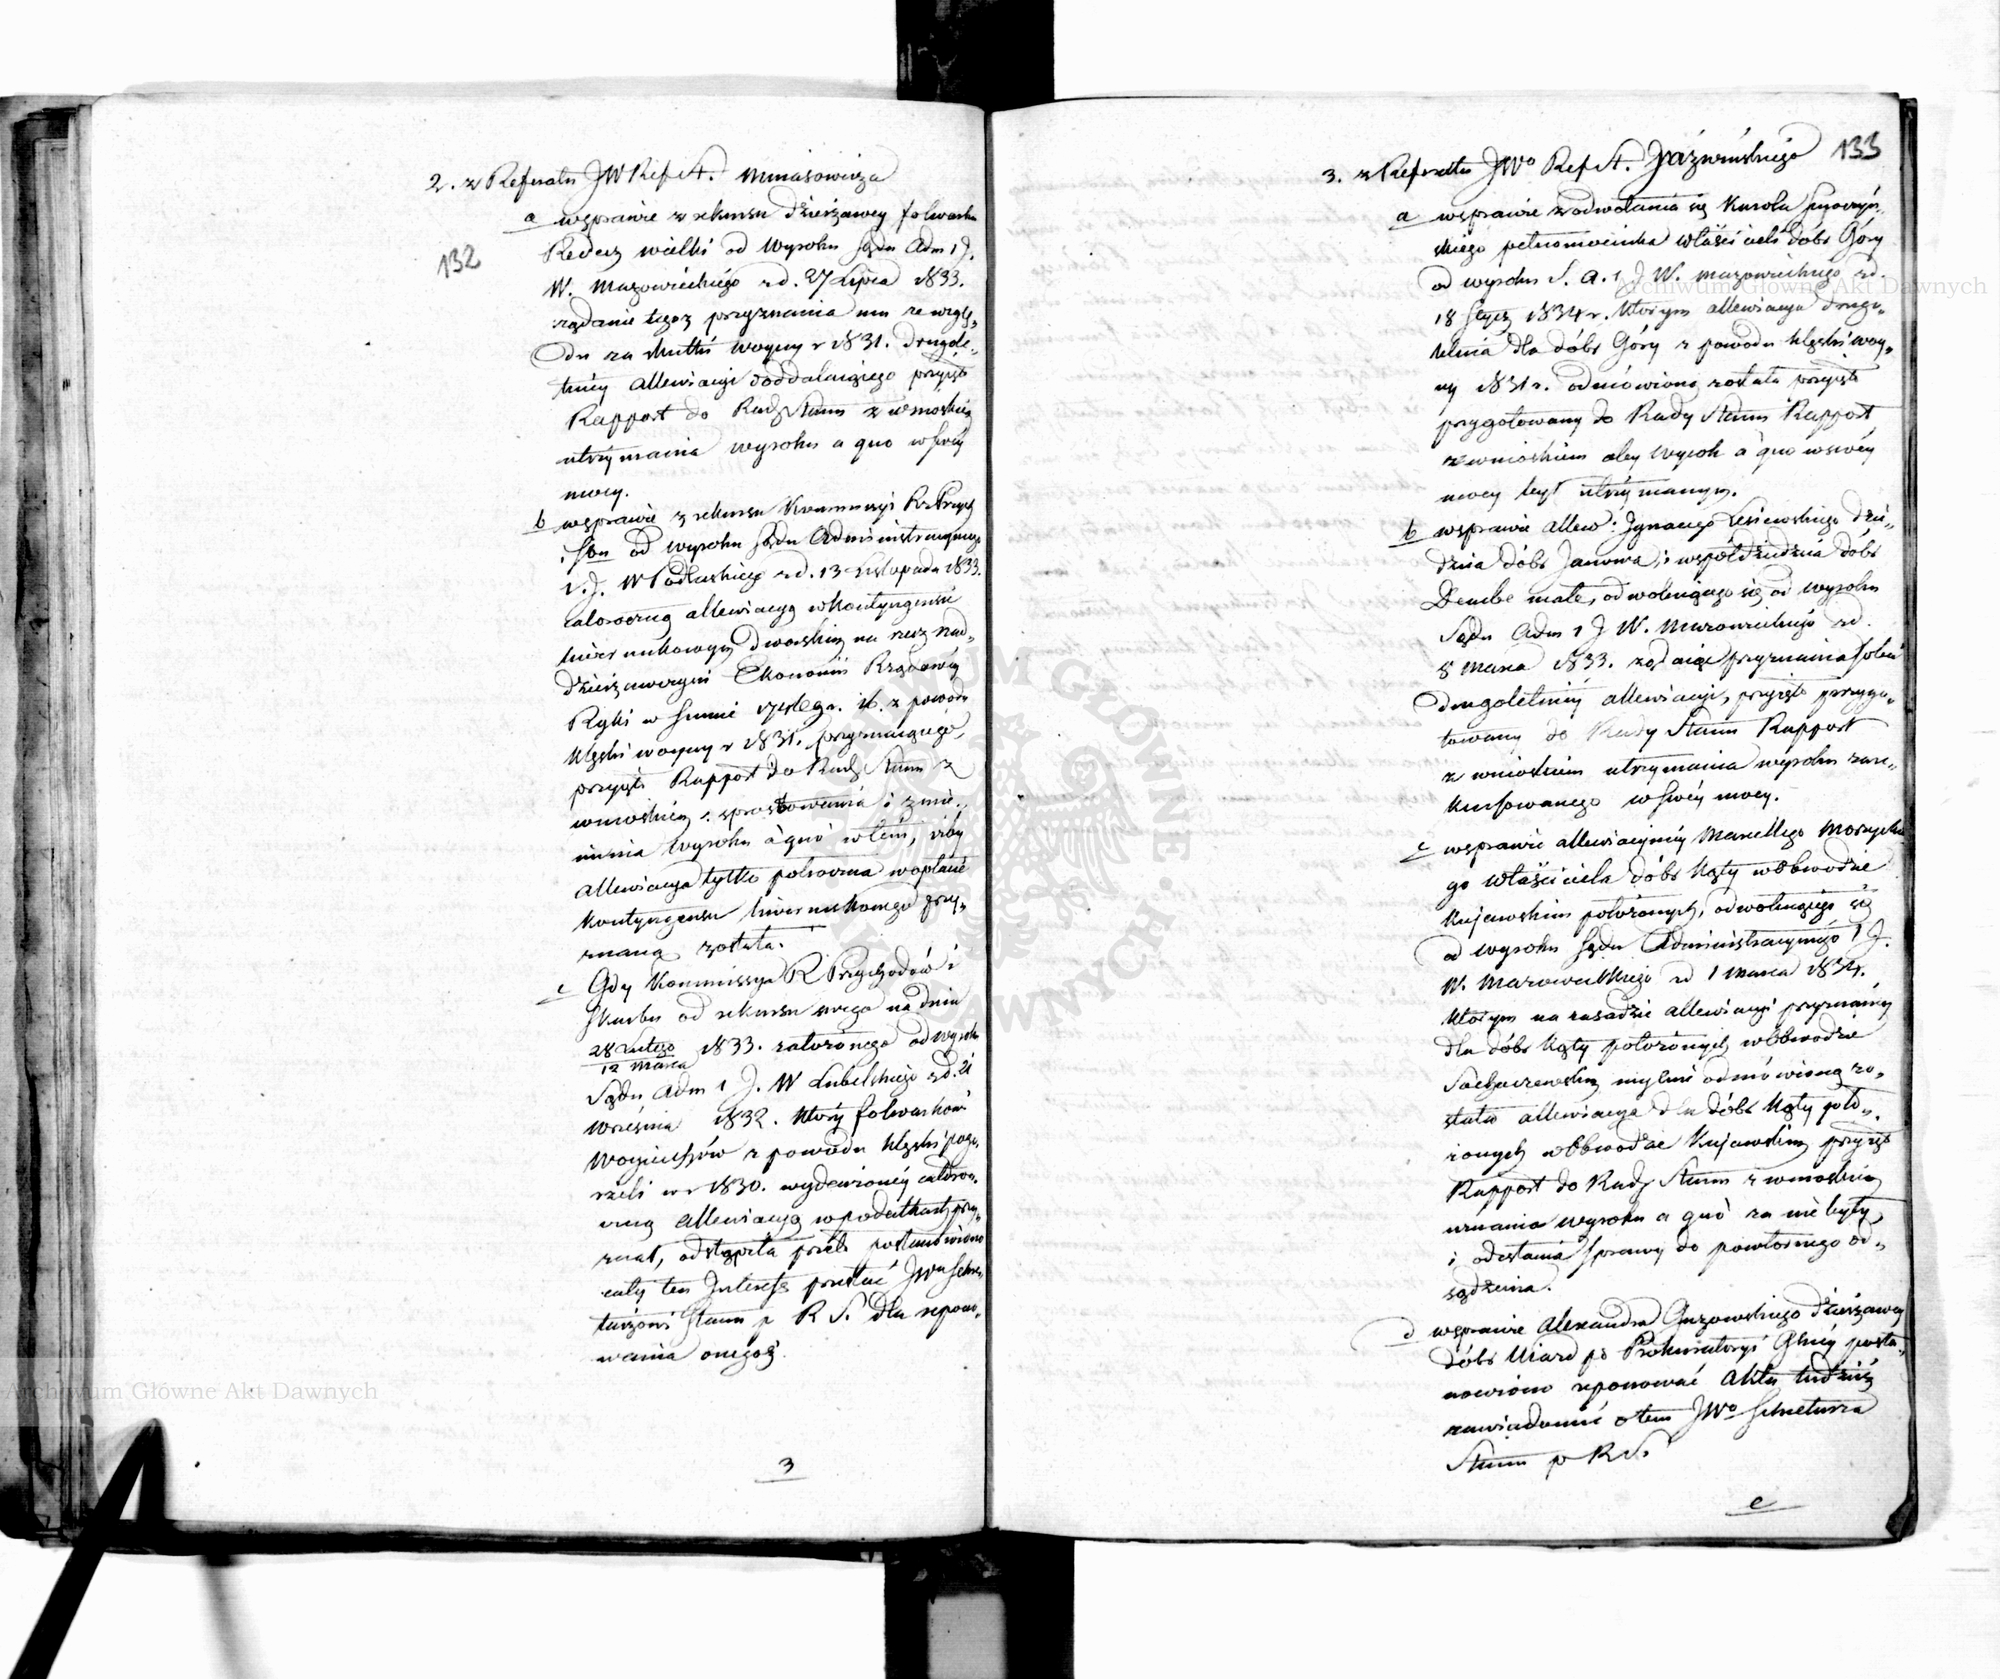 2. z Referatu JW Ref. St. Minasowicza
132
a wsprawie z rekursu dzierżawcy folwarku
Redecz wielki od Wyroku Sądu Adm 1 J.
W. Mazowieckiego z d. 27 Lipca 1833.
żądanie tegoż przyznania mu ze wzglę„
du za skutki woyny r 1831. drugole„
tniey allewiacyi oddalaiącego przyięto
Rapport do Rady Stanu z wnioskiem
utrzymania wyroku a quo w swéy
mocy.
b wsprawie z rekursu Kommissyi R. Przych
i Sku od wyroku Sądu Administracyinego
1. J. W Podlaskiego z d. 13 Listopada 1833.
całoroczną allewiacyą w kontyngensie
liwerunkowym dworskim na rzecz nad„
dzierżawczyni Ekonomii Rządowéy
Ryki w summie gr. 16. z powodu
klęski woyny r 1831. przyznaiącego,
przyięto Rapport do Rady Stanu z
wnioskiem sprostowania i zmie„
nienia Wyroku à quò w tém, iżby
allewiacya tylko półroczna w opłacie
kontyngensu liwerunkowego przy„
znaną została.
c Gdy Kommissya R. Przychodów i
Skarbu od rekursu swego na dniu
28 Lutego
12 Marca 1833. założonego od wyroku
Sądu Adm 1 J. W Lubelskiego z d. 21
Września 1832. który folwarkowi
Woyciechów z powodu klęski pogo„
rzeli w r 1830. wydarzonéy całoro„
czną allewiacyą w podatkach przy„
znał, odstąpiła przeto postanowiono
cały ten Interess przesłać JWu Sekre„
tarzowi Stanu p R S. dla repono„
wania onegoż.
3
133
3. z Referatu JWo Ref. St. Jaźwińskiego
a wsprawie z odwołania się Karola
skiego pełnomocnika właścicieli dóbr Góry
od wyroku S. A. 1 J W. Mazowieckiego z d.
18 Stycz 1834 r. którym allewiacya drugo„
letnia dla dóbr Góry z powodu klęski woy„
ny 1831 r. odmówioną została przyięto
przygotowany do Rady Stanu Rapport
z wnioskiem aby Wyrok a quo w swéy
mocy był utrzymanym.
b wsprawie allew: Ignacego Lesiewskiego dzie„
dzica dóbr Janowa, i współdziedzica dóbr
Dembe małe, odwołuiącego się od wyroku
Sądu Adm 1 J W. Mazowieckiego z d.
8 Marca 1833. żądaiąc przyznania sobie
drugoletniéy allewiacyi, przyięto przygo„
towany do Rady Stanu Rapport
z wnioskiem utrzymania wyroku zare„
kursowanego w swéy mocy.
c wsprawie allewiacyinéy Marcellego
go właściciela dóbr Kąty w Obwodzie
Kujawskim położonych, odwołuiącego się
od wyroku Sądu Administracyinego 1 J.
W. Mazowieckiego z d 1 Marca 1834.
którym na zasadzie allewiacyi przyznanéy
dla dóbr Kąty położonych w Obwodzie
Sochaczewskim mylnie odmówioną zo„
stała allewiacya dla dóbr Kąty poło„
żonych w Obwodzie Kujawskim przyięto
Rapport do Rady Stanu z wnioskiem
uznania wyroku a quò za nie były
i odesłania sprawy do powtórnego od„
sądzenia.
d wsprawie Alexandra Guzowskiego dzierżawcy
dóbr Uiazd po Prokuratoryi Głnéy posta„
nowiono reponować Akta tudzież
zawiadomić o tem JWo Sekretarza
Stanu p R S.
e
Archiwum Główne Akt Dawnych
Archiwum Główne Akt Dawnych
ARCHIWUM GŁÓWNE AKT DAWNYCH